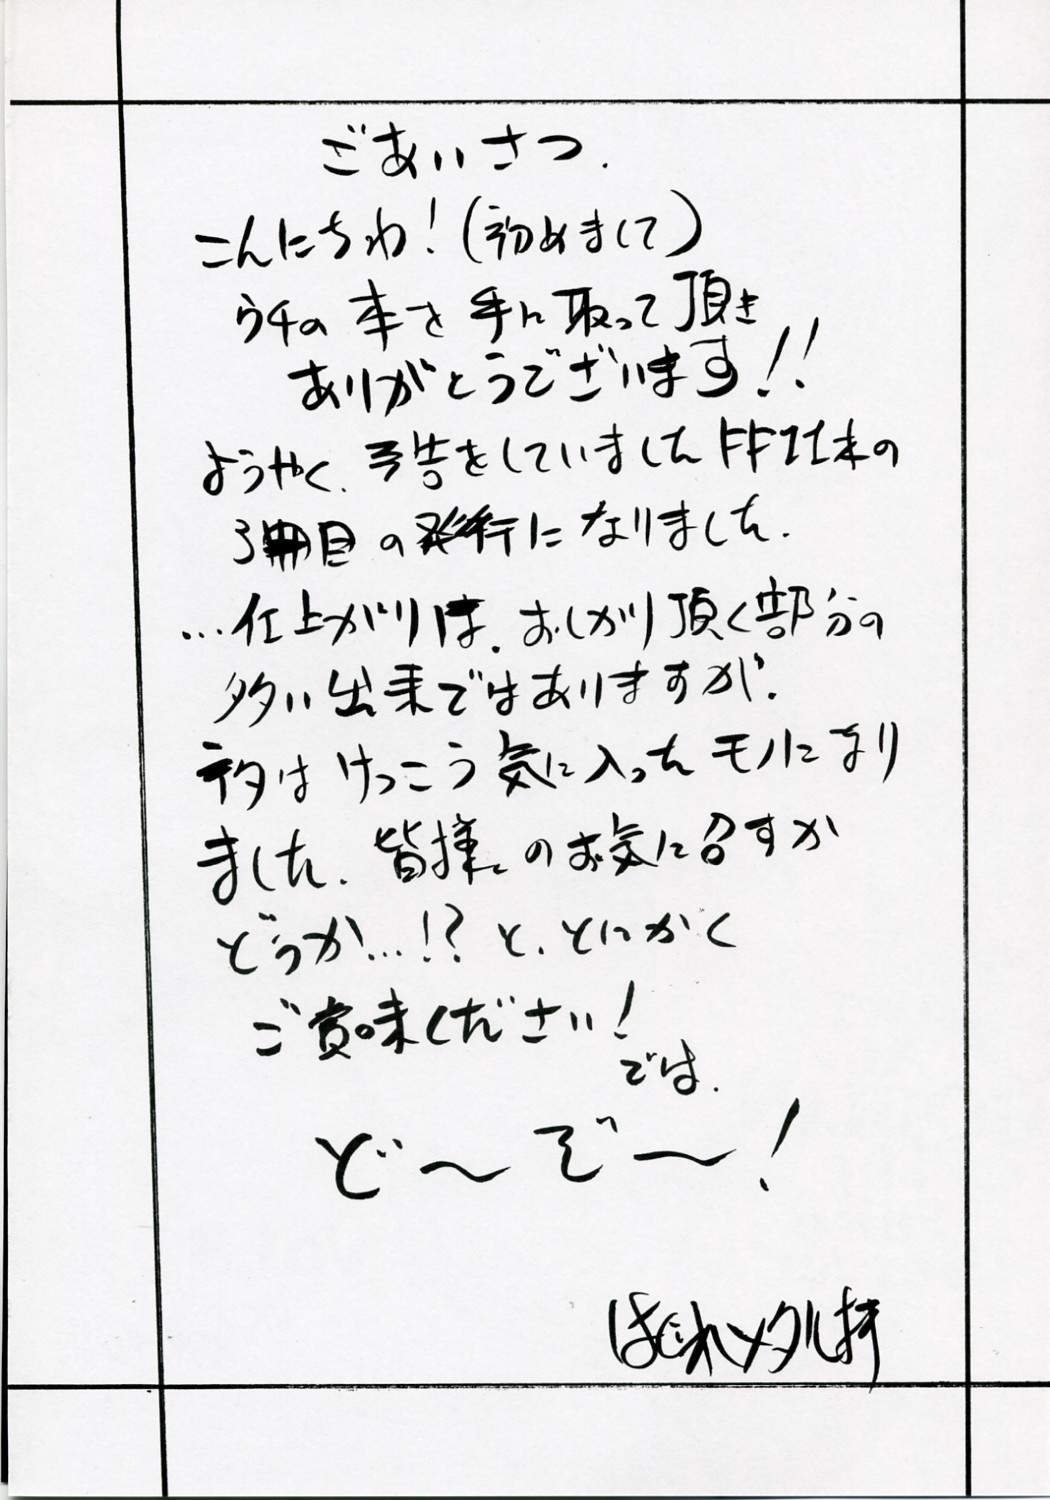 ごあいさつ.
こんにちわ!(初めまして)
ウチの本を手に取って頂き
ありがとうございます!!
ようやく、予告をしていましたFFXI本の
3冊目の発行になりました.
…仕上がりは、おしかり頂く部分の
多い出来ではありますが、
ネタはけっこう気に入ったモノになり
ました、皆様のお気に召すか
どうか…!?と、とにかく
ご賞味ください!
では、
ど〜ぞ〜!
はぐれメタル